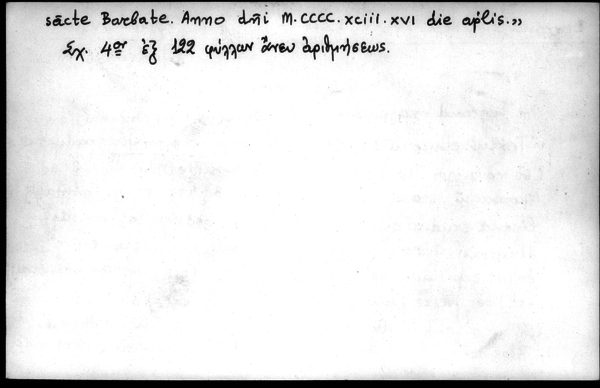 sācte Barbate. Anno dn̄i M.CCCC.xciii.xvi die apl̄is.„
Σχ. 4ον ἐξ 122 φύλλων ἄνευ ἀριθμήσεως.